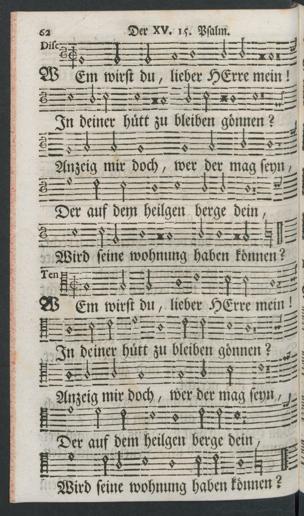 62 Der XV. 15. Psalm.
Disc
WEm wirst du, lieber HErre mein!
In deiner hütt zu bleiben gönnen?
Anzeig mir doch, wer der mag seyn,
Der auf dem heilgen berge dein,
Wird seine wohnung haben können?
Ten
WEm wirst du, lieber HErre mein!
In deiner hütt zu bleiben gönnen?
Anzeig mir doch, wer der mag seyn,
Der auf dem heilgen berge dein,
Wird seine wohnung haben können?